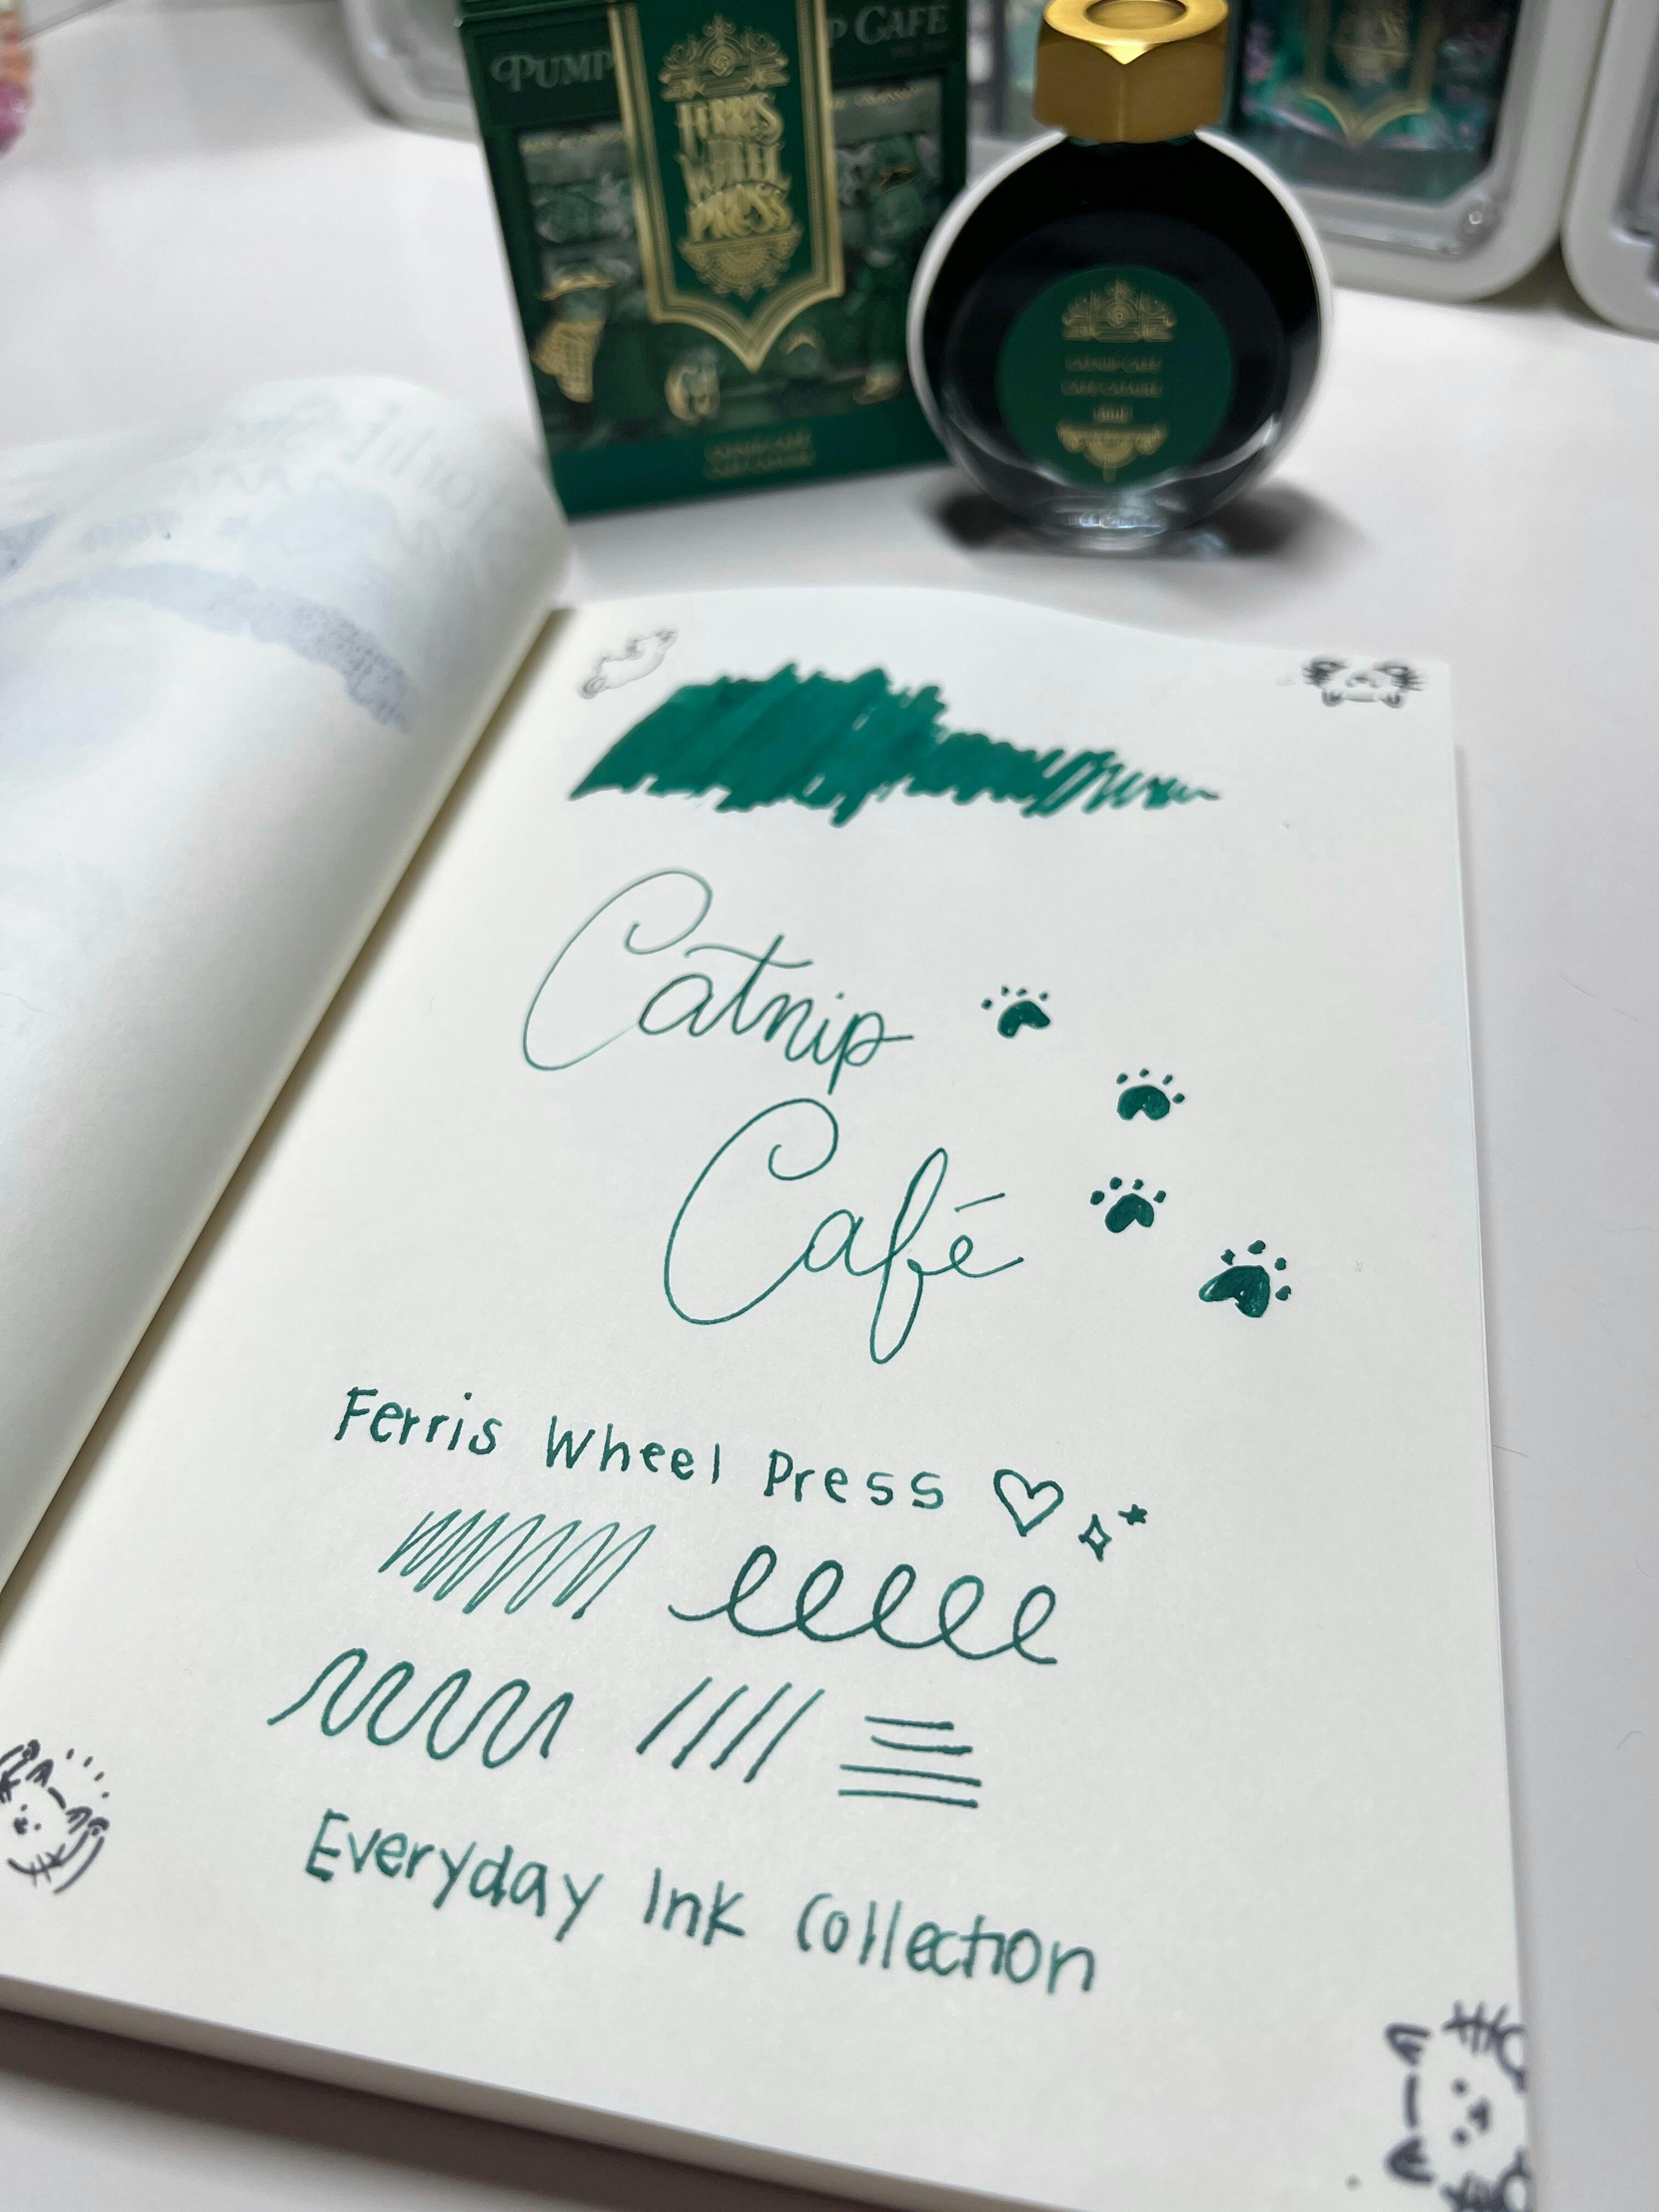 PUMP
P CAFÉ
FERRIS
WHEEL
PRESS
CATNIP CAFÉ
Catnip
Café
Ferris Wheel Press
Everyday Ink Collection